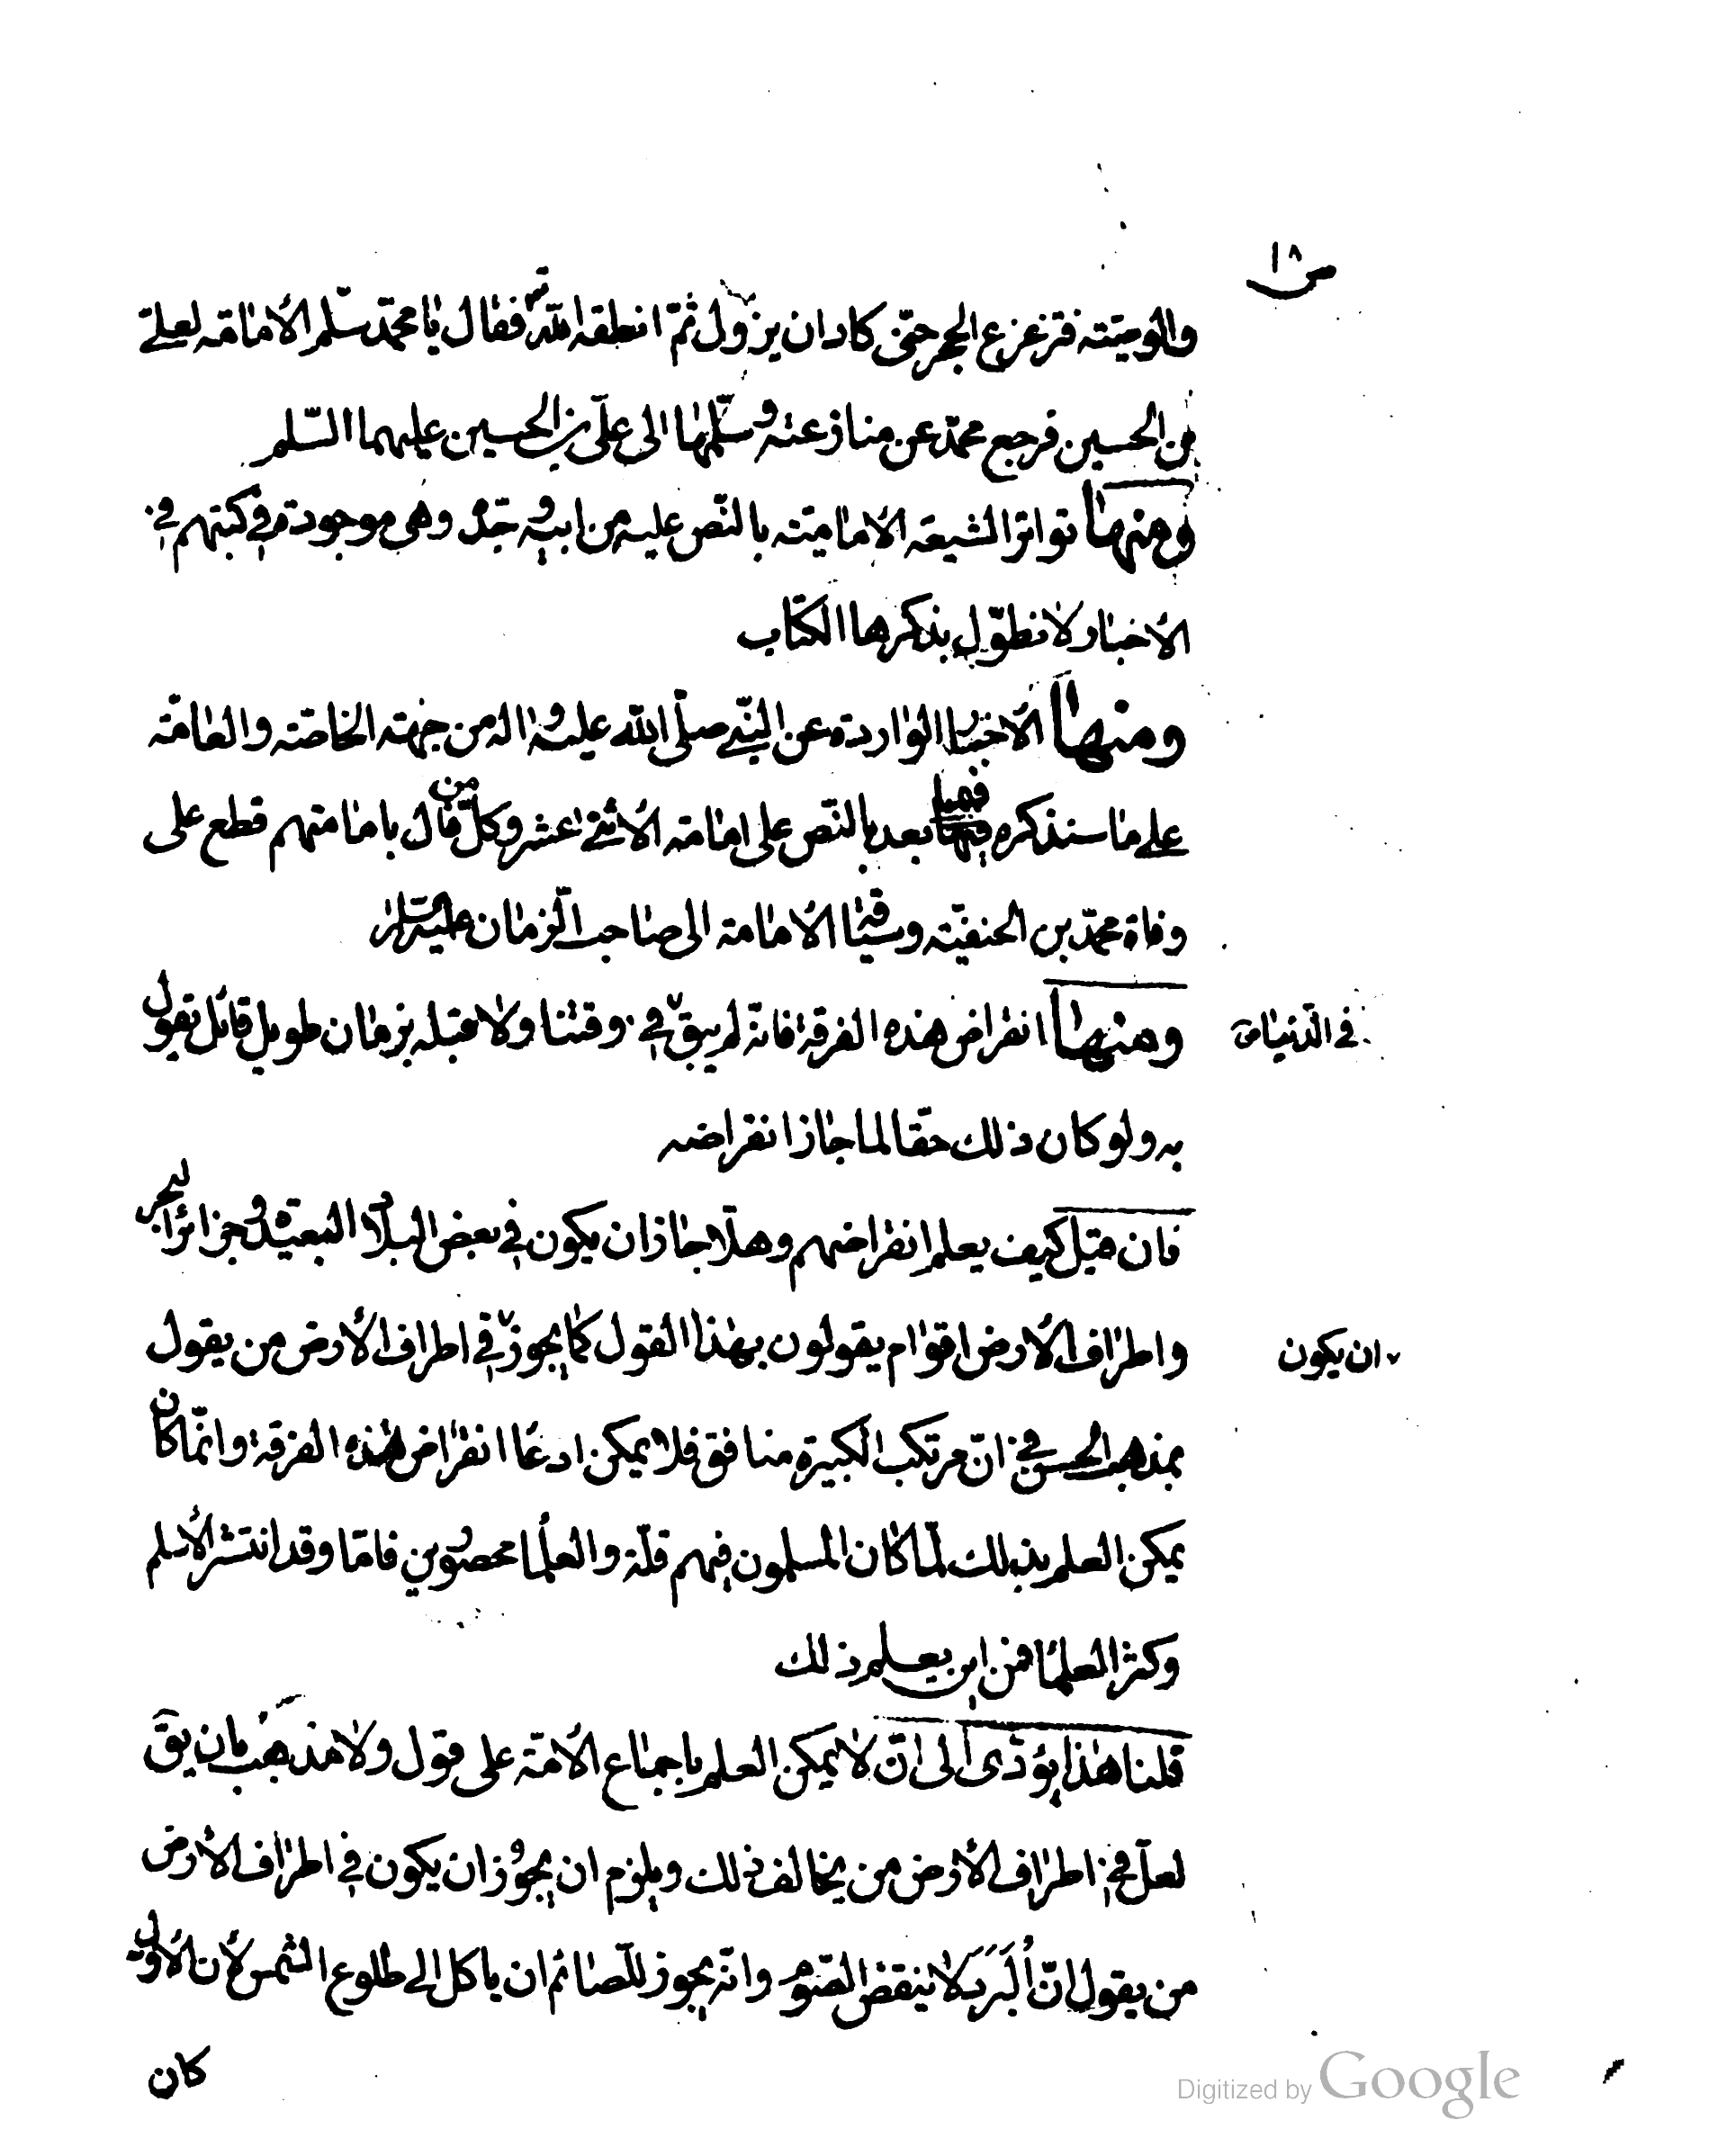 ص ١٨
والوصيّته فتزعزع الحجر حتّى كاد ان يزول ثمّ انطقه اللّه تع فقال يا محمّد سلّم الامامة لعلىّ
بن الحسين فرجع محمّد عن منازعته وسلّمها الى علىّ بن الحسين عليهما السّلم
ومنها تواتر الشيعة الاماميّة بالنّص عليه من ابيه وجدّه وهى موجودة فى كتبهم فى
الاخبار لا نطوّل بذكرها الكتاب
ومنها الاخبار الواردة عن النّبى صلّى اللّه عليه واله من جهة الخاصّة والعامّة
على ما سنذكره فيما بعد بالنّص على امامة الاثنى عشر وكلّ من قال بامامتهم قطع على
وفاة محمّد بن الحنفيّة وسياقة الامامة الى صاحب الزمان عليه السّلم
ومنها انقراض هذه الفرقة فانّه لم يبق فى وقتنا ولا قبله بزمان طويل قائل يقول
فى الدّنيا
به ولو كان ذلك حقا لما جاز انقراضه
فان قيل كيف يعلم انقراضهم وهلّا جاز ان يكون فى بعض البلاد البعيدة وجزائر البحر
واطراف الارض اقوام يقولون بهذا القول كما يجوز فى اطراف الارض من يقول
ان يكون
بمذهب الحسن فى انّ مرتكب الكبيرة منافق فلا يمكن ادعاء انقراض هذه الفرقة وانّما كان
يمكن العلم بذلك لمّا كان المسلمون فيهم قلّة والعلما محصورين فامّا وقد انتشر الاسلم
وكثر العلما فمن اين يعلم ذلك
قلنا هذا يؤدّى الى انّ لا يمكن العلم باجماع الامّة على قول ولا مذهب بان يق
لعلّ فى اطراف الارض من يخالف ذلك ويلزم ان يجوز ان يكون فى اطراف الارض
من يقول انّ البَرَد لا ينقض الصّوم وانّه يجوز للصّائم ان ياكل الى طلوع الشمس لان الاول
كان
Digitized by Google